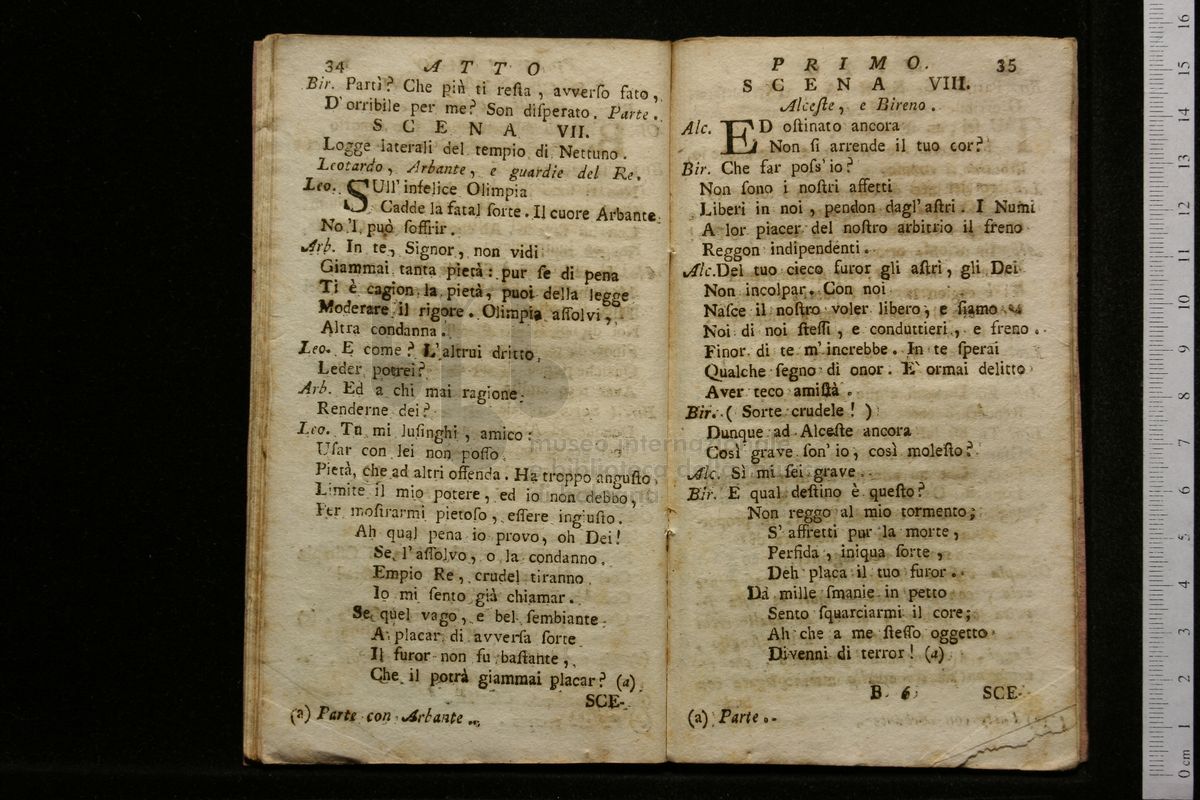 34 ATTO
Bir. Partì? Che più ti resta, avverso fato,
D'orribile per me? Son disperato. Parte.
SCENA VII.
Logge laterali del tempio di Nettuno.
Leotardo, Arbante, e guardie del Re.
Leo. SUll'infelice Olimpia
Cadde la fatal sorte. Il cuore Arbante
No'l può soffrir.
Arb. In te, Signor, non vidi
Giammai tanta pietà: pur se di pena
Ti è cagion la pietà, puoi della legge
Moderare il rigore. Olimpia assolvi,
Altra condanna.
Leo. E come? L'altrui dritto
Leder potrei?
Arb. Ed a chi mai ragione
Renderne dei?
Leo. Tu mi lusinghi, amico:
Usar con lei non posso
Pietà, che ad altri offenda. Ha troppo angusto
Limite il mio potere, ed io non debbo,
Per mostrarmi pietoso, essere ingiusto.
Ah qual pena io provo, oh Dei!
Se l'assolvo, o la condanno.
Empio Re, crudel tiranno
Io mi sento già chiamar.
Se quel vago, e bel sembiante
A placar di avversa sorte
Il furor non fu bastante,
Che il potrà giammai placar? (a)
SCE-
(a) Parte con Arbante.
PRIMO. 35
SCENA VIII.
Alceste, e Bireno.
Alc. ED ostinato ancora
Non si arrende il tuo cor?
Bir. Che far poss'io?
Non sono i nostri affetti
Liberi in noi, pendon dagl'astri. I Numi
A lor piacer del nostro arbitrio il freno
Reggon indipendenti.
Alc. Del tuo cieco furor gli astri, gli Dei
Non incolpar. Con noi
Nasce il nostro voler libero, e siamo
Noi di noi stessi, e conduttieri, e freno.
Finor di te m'increbbe. In te sperai
Qualche segno di onor. E' ormai delitto
Aver teco amistà.
Bir. (Sorte crudele!)
Dunque ad Alceste ancora
Così grave son'io, così molesto?
Alc. Sì mi sei grave.
Bir. E qual destino è questo?
Non reggo al mio tormento;
S'affretti pur la morte,
Perfida, iniqua sorte,
Deh placa il tuo furor.
Da mille smanie in petto
Sento squarciarmi il core;
Ah che a me stesso oggetto
Divenni di terror! (a)
B 6 SCE-
(a) Parte.
museo internazionale
e biblioteca della musica
0 cm 1 2 3 4 5 6 7 8 9 10 11 12 13 14 15 16